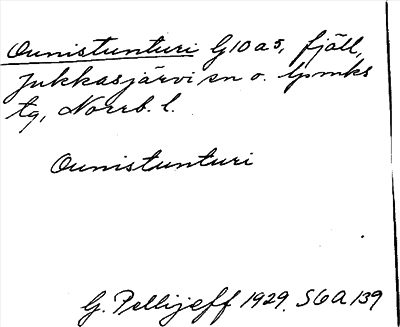 Ounistunturi G10a5, fjäll,
Jukkasjärvi sn o. lpmks
tg, Norrb. l.
Ounistunturi
G. Pellijeff 1929. S6A139